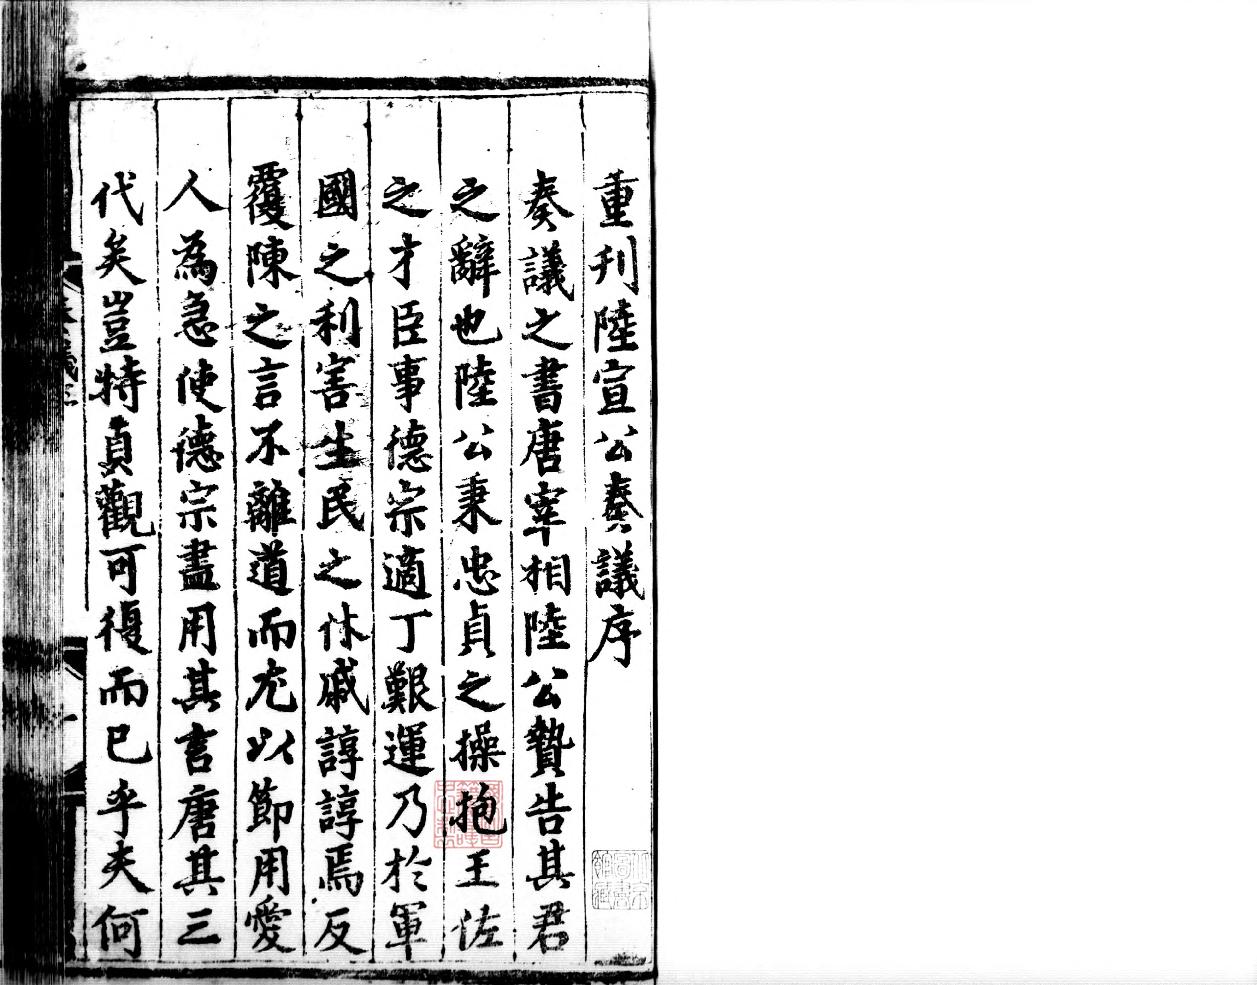 重刊陸宣公奏議序
奏議之書唐宰相陸公贄告其君
之辭也陸公秉忠貞之操抱王佐
之才臣事德宗適丁艱運乃於軍
國之利害生民之休戚諄諄焉反
覆陳之言不離道而尤以節用愛
人為急使德宗盡用其言唐其三
代矣豈特貞觀可復而已乎夫何